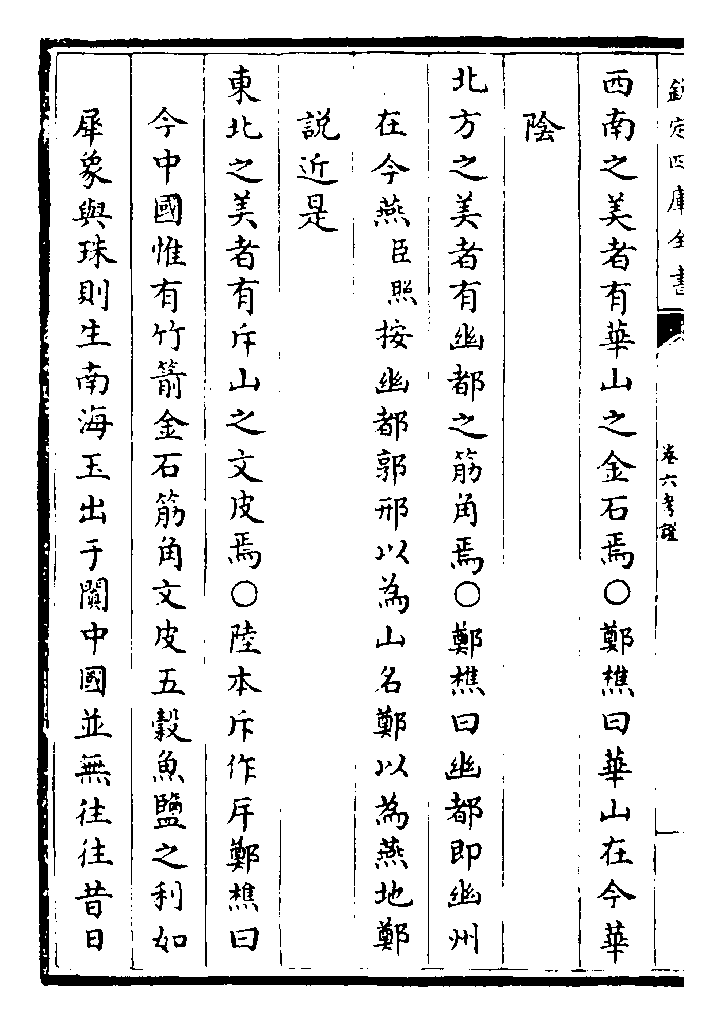 欽定四庫全書
卷六考證
西南之美者有華山之金石焉○鄭樵曰華山在今華
陰
北方之美者有幽都之筋角焉○鄭樵曰幽都即幽州
在今燕臣照按幽都郭邢以為山名鄭以為燕地鄭
説近是
東北之美者有斥山之文皮焉○陸本斥作㡿鄭樵曰
今中國惟有竹箭金石筋角文皮五穀魚鹽之利如
犀象與珠則生南海玉出于闐中國並無往往昔日